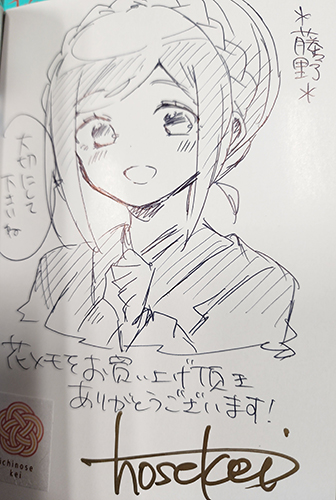 *藤野*
大切にして
下さいね
花メモをお買い上げ頂き
ありがとうございます!
ichinose
kei